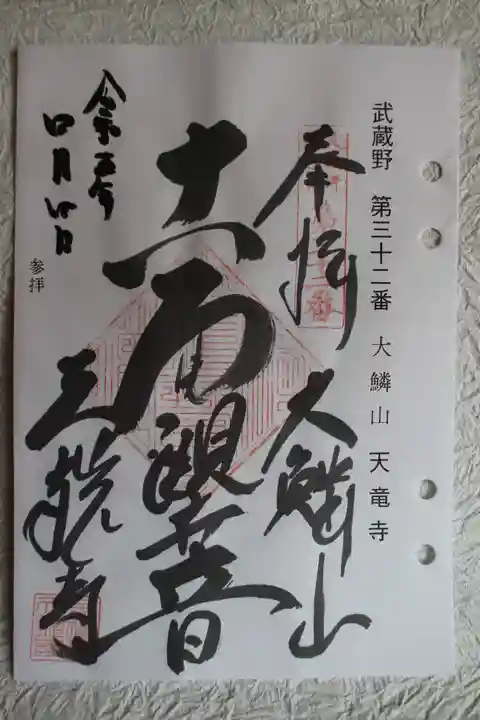 武蔵野 第三十二番 大鱗山 天竜寺
奉拝 大鱗山
十一面観音
天龍寺
令和五年
四月四日
参拝